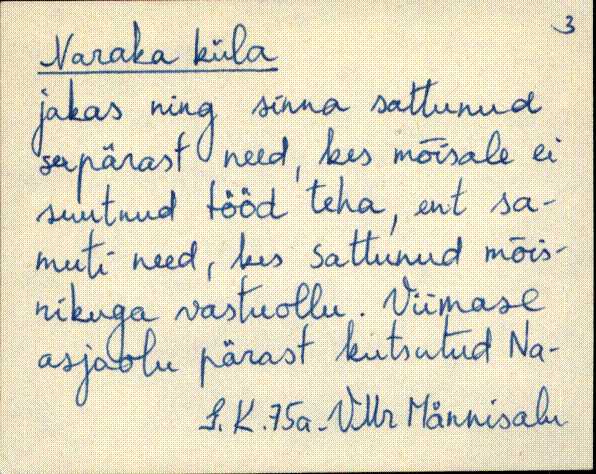 3
Naraka küla
jakas ning sinna sattunud
seepärast need, kes mõisale ei
suutnud tööd teha, ent sa-
muti need, kes sattunud mõis-
nikuga vastuollu. Viimase
asjaolu pärast kutsutud Na-
S.K. 75a. VMr Männisalu